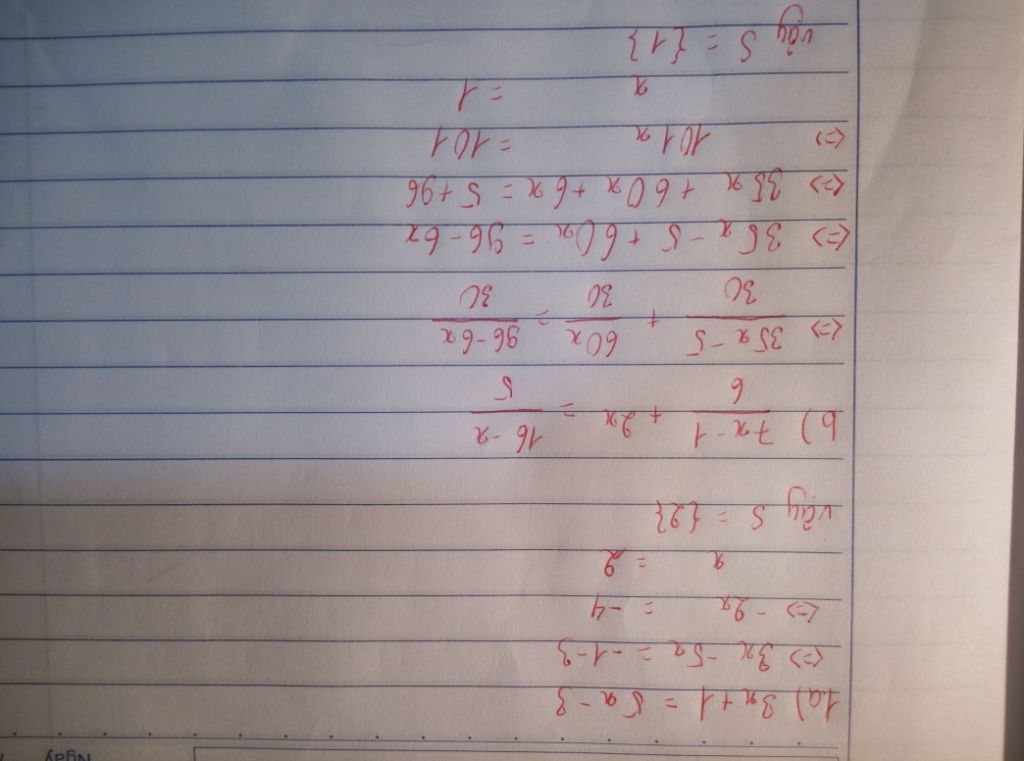 Ngày
1a) 3x + 1 = 5x - 3
<=> 3x - 5x = -1 - 3
<=> -2x = -4
x = 2
vậy S = {2}
b) (7x - 1)/6 + 2x = (16 - x)/5
<=> (35x - 5)/30 + 60x/30 = (96 - 6x)/30
<=> 35x - 5 + 60x = 96 - 6x
<=> 35x + 60x + 6x = 5 + 96
<=> 101x = 101
x = 1
vậy S = {1}